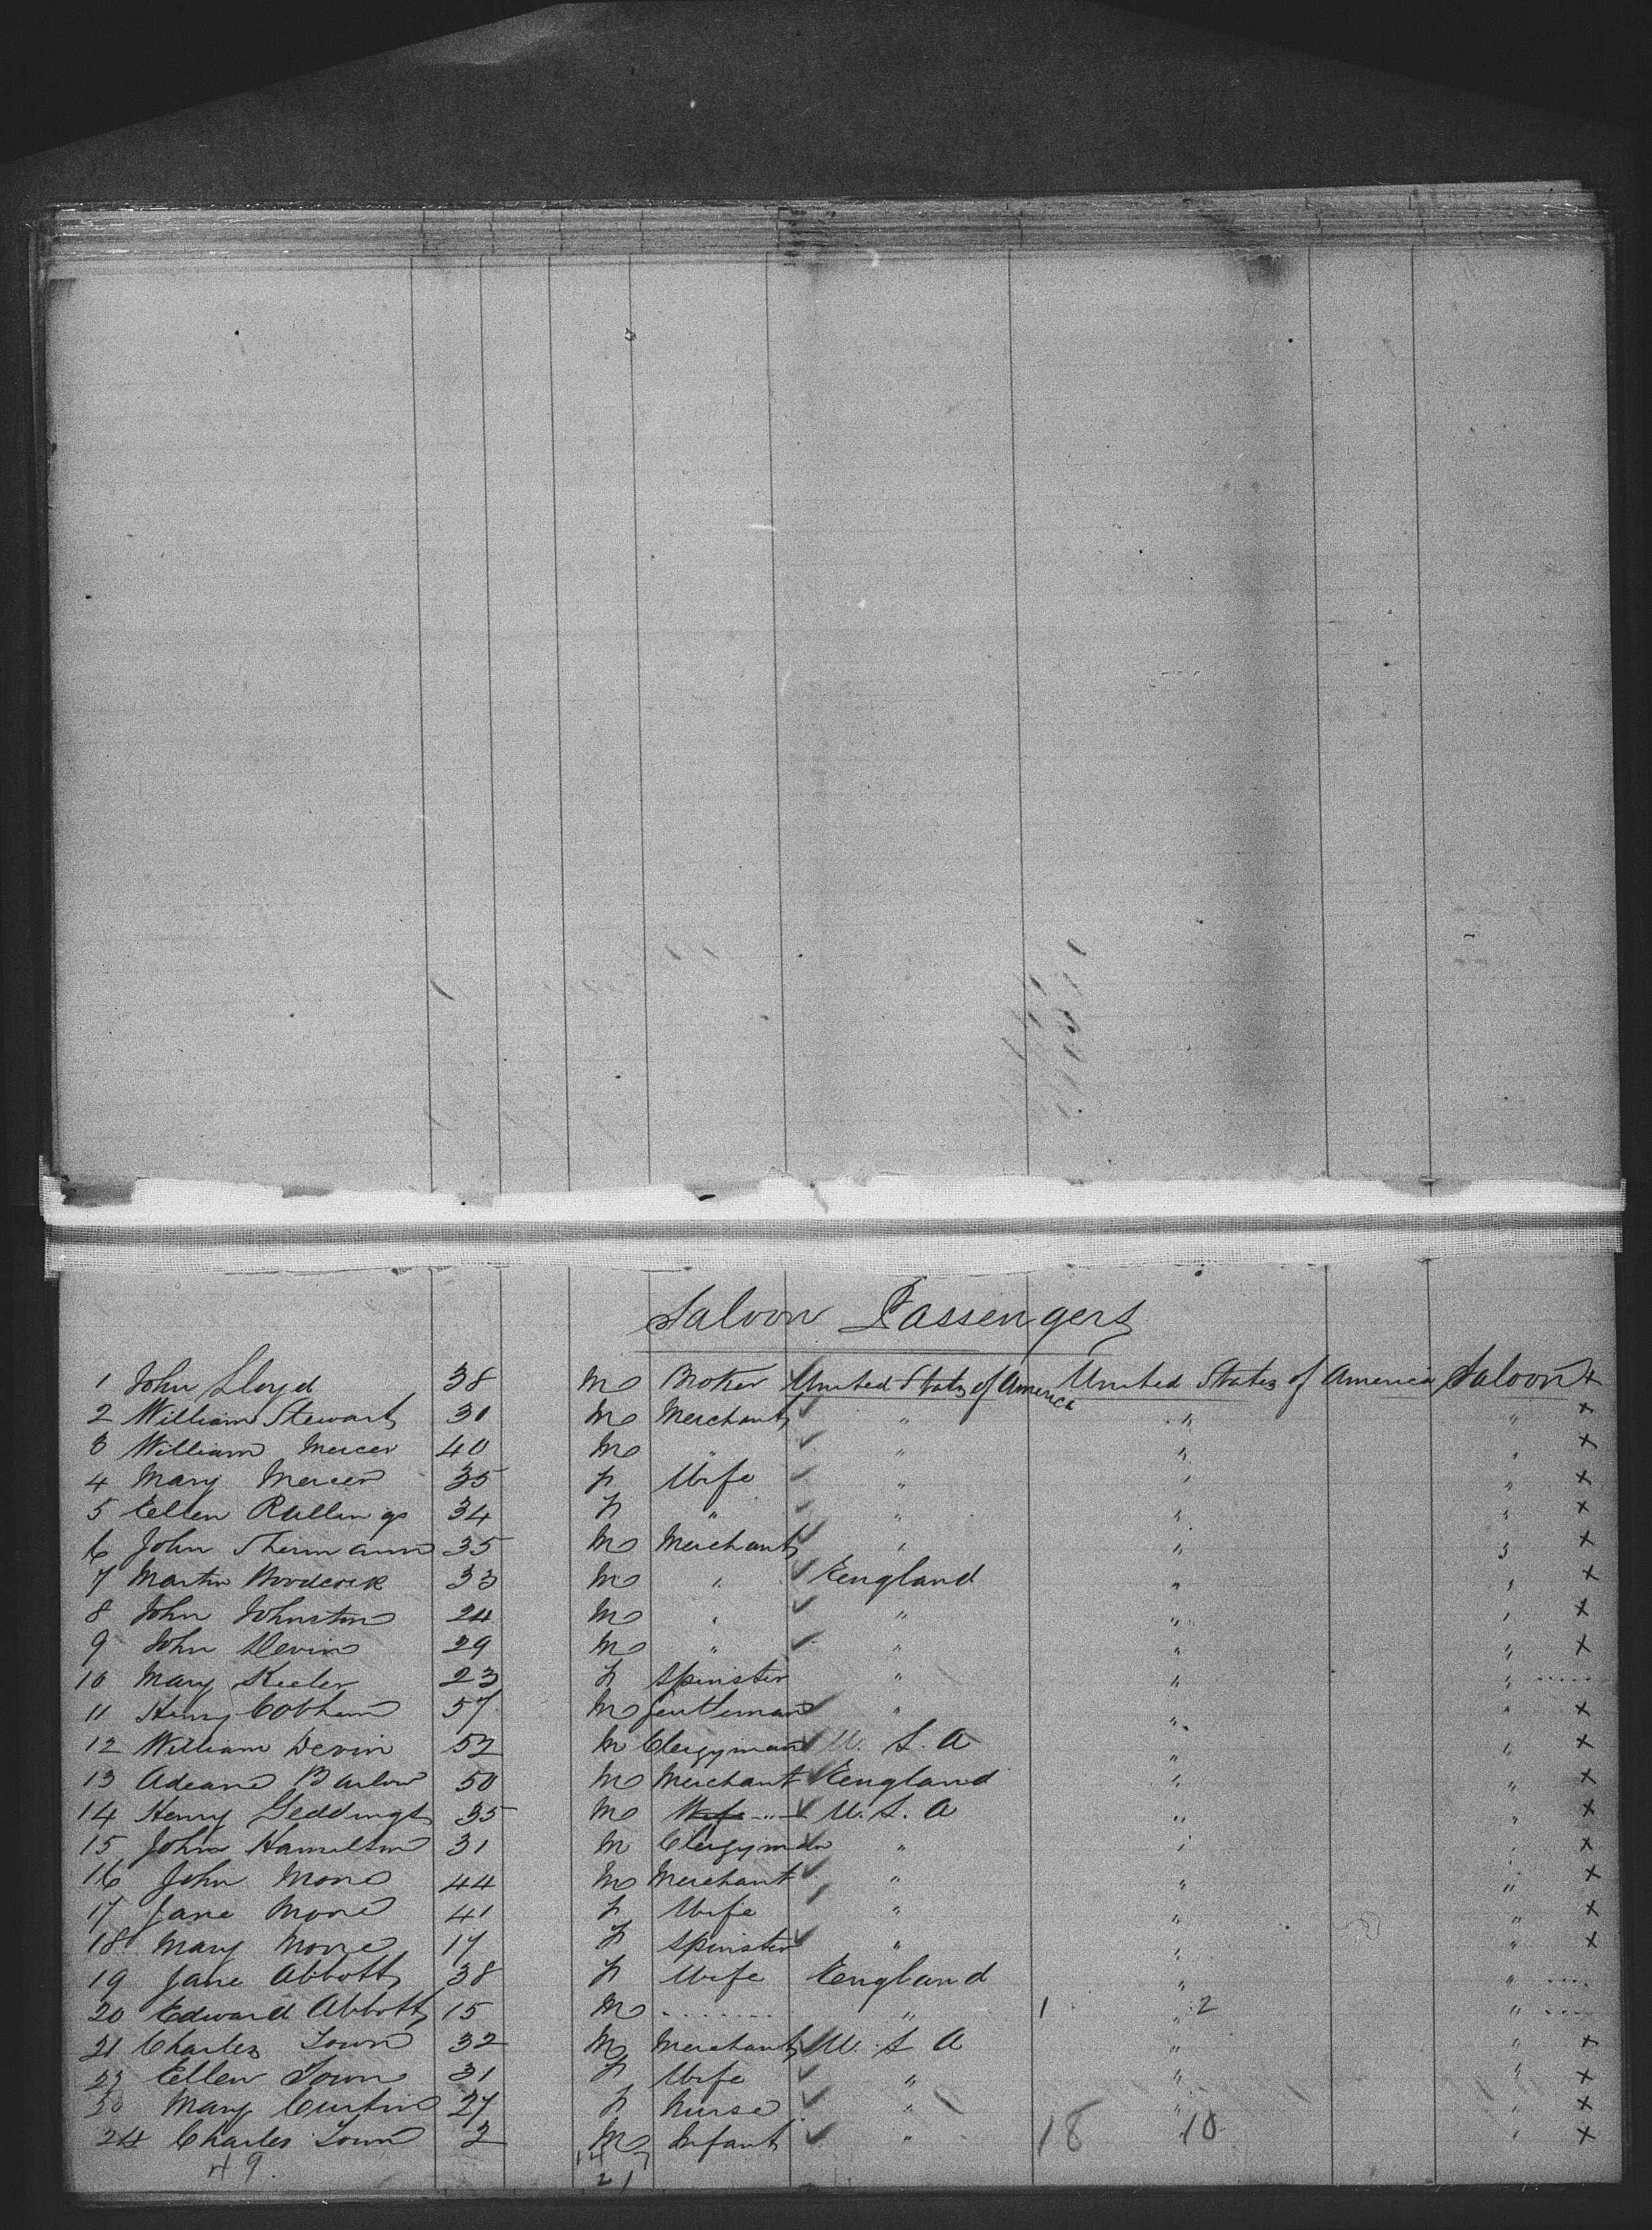 Saloon Passengers
1 John Lloyd 38 M Broker United States of America United States of America Saloon x
2 William Stewart 30 M Merchant " " " x
3 William Mercer 40 M " " " " x
4 Mary Mercer 35 F Wife " " " x
5 Ellen Rallings 34 F " " " " x
6 John 35 M Merchant " " " x
7 Martin Woodcock 33 M " England " " x
8 John Johnston 24 M " " " " x
9 John Devin 29 M " " " " x
10 Mary Keeler 23 F Spinster " " "
11 Henry Cobham 57 M Gentleman " " " x
12 William Devin 52 M Clergyman U. S. A " " x
13 Barlow 50 M Merchant England " " x
14 Henry Geddings 35 M Wife " U. S. A " " x
15 John Hamilton 31 M Clergyman " " " x
16 John More 44 M Merchant " " " x
17 Jane More 41 F Wife " " " x
18 Mary More 17 F Spinster " " " x
19 Jane Abbott 38 F Wife England " "
20 Edward Abbott 15 M " 1 " 2 "
21 Charles Town 32 M Merchant U. S A " " x
22 Ellen Town 31 F Wife " " " x
23 Mary Curtin 27 F Nurse " " " x
24 Charles Town 2 M Infant " 18 10 " x
49 14 7
21